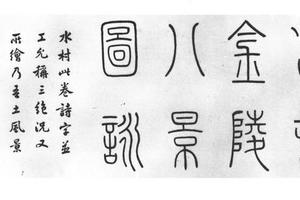 金陵
八景
圖詠
水村此卷詩字並
工允稱三絕況又
所繪乃吾土風景